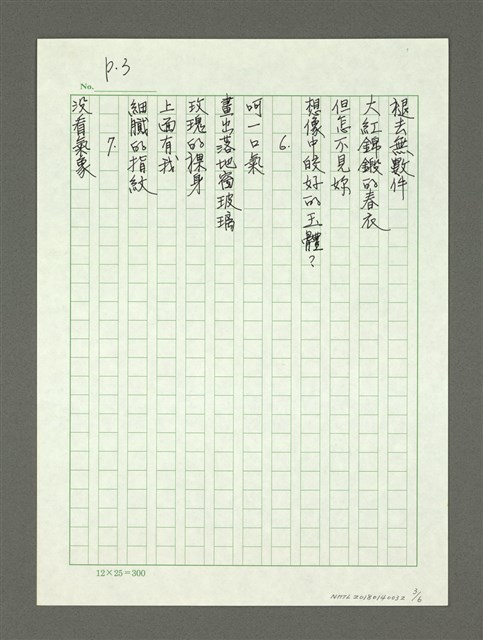 p.3
No.
褪去無數件
大紅錦鍛的春衣
但怎不見妳
想像中皎好的玉體？
6.
呵一口氣
畫出落地窗玻璃
玫瑰的裸身
上面有我
細膩的指紋
7.
没看氣象
12×25=300
NMTL20180140032
3/6